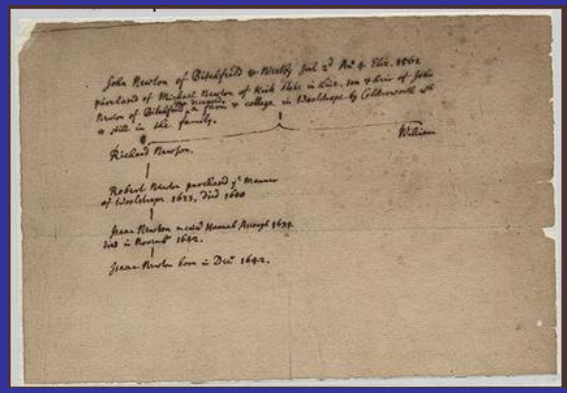 John Newton of Bitchfield & Westby July 2d An. 4. Eliz. 1562
purchased of Michael Newton of Kirk in Linc. son & heir of John
Newton of Bitchfield a farm & cottage in Woolsthorpe by Colsterworth
& still in the family.
Richard Newton. William
Robert Newton purchased ye Mannor
of Woolsthorpe 1623, died
Isaac Newton married Hannah 1639.
died in 1642.
Isaac Newton born in Decr 1642.